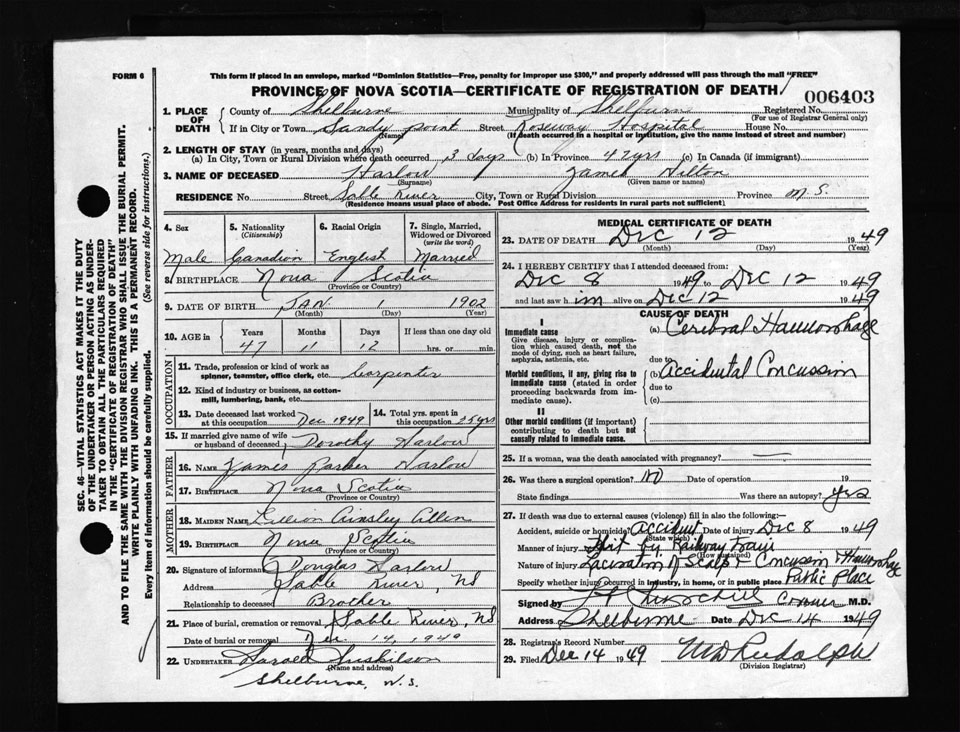 FORM 6
This form if placed in an envelope, marked "Dominion Statistics—Free, penalty for improper use $300," and properly addressed will pass through the mail "FREE"
PROVINCE OF NOVA SCOTIA—CERTIFICATE OF REGISTRATION OF DEATH
006403
1. PLACE OF DEATH
County of Shelburne Municipality of Shelburne Registered No.
(For use of Registrar General only)
If in City or Town Sandy point Street Roseway Hospital House No.
(Name) (If death occurred in a hospital or institution, give the name instead of street and number)
2. LENGTH OF STAY (in years, months and days)
(a) In City, Town or Rural Division where death occurred 3 days (b) In Province 47 yrs (c) In Canada (if immigrant)
3. NAME OF DECEASED Harlow James Hilton
(Surname) (Given name or names)
RESIDENCE No. Street Sable River City, Town or Rural Division Province N.S.
(Residence means usual place of abode. Post Office Address for residents in rural parts not sufficient)
4. Sex Male
5. Nationality (Citizenship) Canadian
6. Racial Origin English
7. Single, Married, Widowed or Divorced (write the word) Married
8. BIRTHPLACE Nova Scotia
(Province or Country)
9. DATE OF BIRTH JAN 1 1902
(Month) (Day) (Year)
10. AGE in Years Months Days If less than one day old
47 11 12 hrs. or min.
OCCUPATION
11. Trade, profession or kind of work as spinner, teamster, office clerk, etc. Carpenter
12. Kind of industry or business, as cotton-mill, lumbering, bank, etc.
13. Date deceased last worked at this occupation Dec 1949
14. Total yrs. spent in this occupation 25 yrs
15. If married give name of wife or husband of deceased Dorothy Harlow
FATHER
16. NAME James Parker Harlow
17. BIRTHPLACE Nova Scotia
(Province or Country)
MOTHER
18. MAIDEN NAME Lillian Ainsley Allen
19. BIRTHPLACE Nova Scotia
(Province or Country)
20. Signature of informant Douglas Harlow
Address Sable River, NS
Relationship to deceased Brother
21. Place of burial, cremation or removal Sable River, NS
Date of burial or removal Dec. 14, 1949
22. UNDERTAKER Harold Huskilson
(Name and address)
Shelburne, N.S.
MEDICAL CERTIFICATE OF DEATH
23. DATE OF DEATH Dec 12 1949
(Month) (Day) (Year)
24. I HEREBY CERTIFY that I attended deceased from:
Dec 8 1949 to Dec 12 1949
and last saw him alive on Dec 12 1949
CAUSE OF DEATH
I
Immediate cause
Give disease, injury or complication which caused death, not the mode of dying, such as heart failure, asphyxia, asthenia, etc.
(a) Cerebral Haemorrhage
due to
Morbid conditions, if any, giving rise to immediate cause (stated in order proceeding backwards from immediate).
(b) Accidental Concussion
due to
(c)
II
Other morbid conditions (if important) contributing to death but not causally related to immediate cause.
25. If a woman, was the death associated with pregnancy? —
26. Was there a surgical operation? No Date of operation 19
State findings Was there an autopsy? Yes
27. If death was due to external causes (violence) fill in also the following:
Accident, suicide or homicide? Accident Date of injury Dec 8 1949
(State which)
Manner of injury Hit by Railway train
(How sustained)
Nature of injury Laceration of Scalp & Concussion & Haemorrhage
Specify whether injury occurred in industry, in home, or in public place Public Place
Signed by Churchill Coroner M.D.
Address Shelburne Date Dec 14 1949
28. Registrar's Record Number
29. Filed Dec 14 1949 Rudolph
(Division Registrar)
SEC. 46—VITAL STATISTICS ACT MAKES IT THE DUTY
OF THE UNDERTAKER OR PERSON ACTING AS UNDER-
TAKER TO OBTAIN ALL THE PARTICULARS REQUIRED
IN THE "CERTIFICATE OF REGISTRATION OF DEATH"
AND TO FILE THE SAME WITH THE DIVISION REGISTRAR WHO SHALL ISSUE THE BURIAL PERMIT.
WRITE PLAINLY WITH UNFADING INK. THIS IS A PERMANENT RECORD.
Every item of information should be carefully supplied. (See reverse side for instructions.)